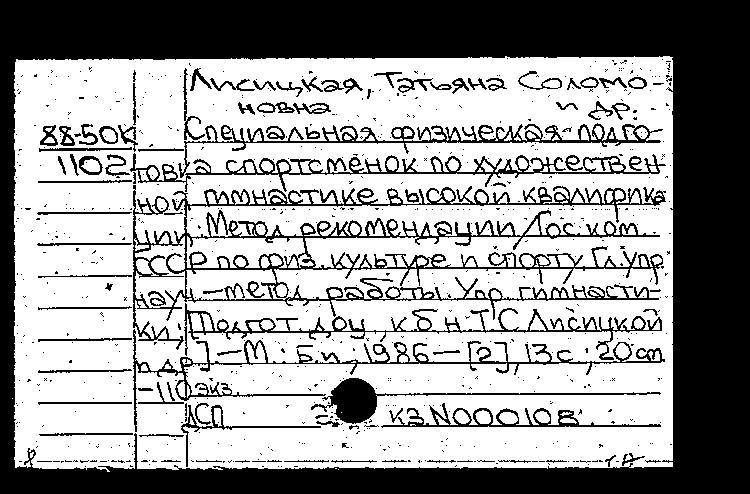 Лисицкая, Татьяна Соломо-
новна и др.
88-50К Специальная физическая подго-
1102 товка спортсменок по художествен-
ной гимнастике высокой квалифика
ции: Метод. рекомендации / Гос. ком.
СССР по физ. культуре и спорту. Гл. упр.
науч.-метод. работы. Упр. гимнасти-
ки; [Подгот. доц., к. б. н. Т. С. Лисицкой
и др.] — М.: Б. и., 1986 — [2], 13 с.; 20 см
-110 экз.
ДСП КЗ.N000108.